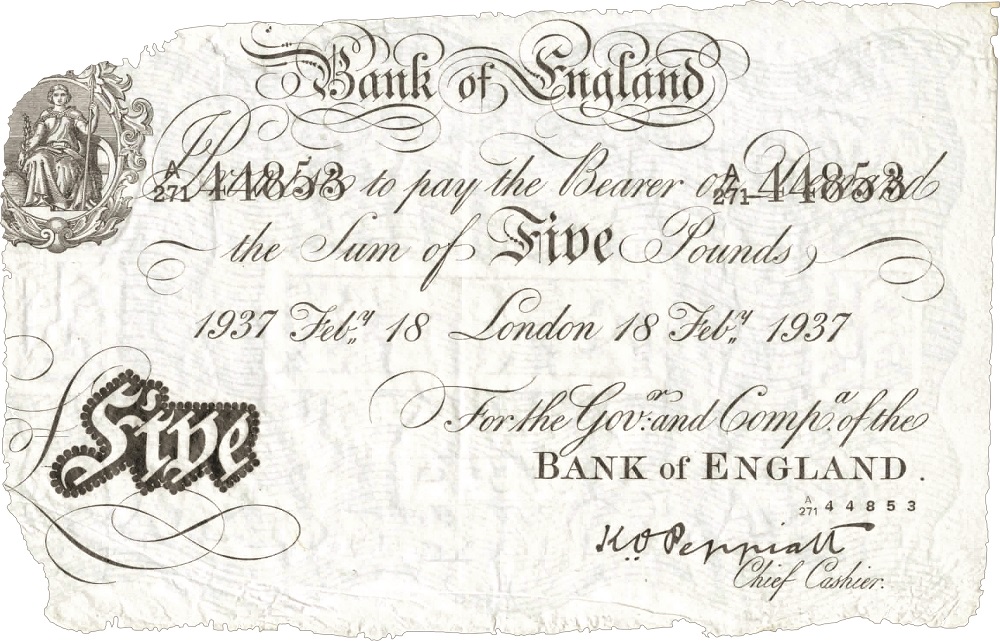 Bank of England
I Promise to pay the Bearer on Demand
A/271 44853 A/271 44853
the Sum of Five Pounds
1937 Feby 18 London 18 Feby 1937
For the Govr. and Compa. of the
Five
BANK of ENGLAND.
A/271 44853
K.O. Peppiatt
Chief Cashier.